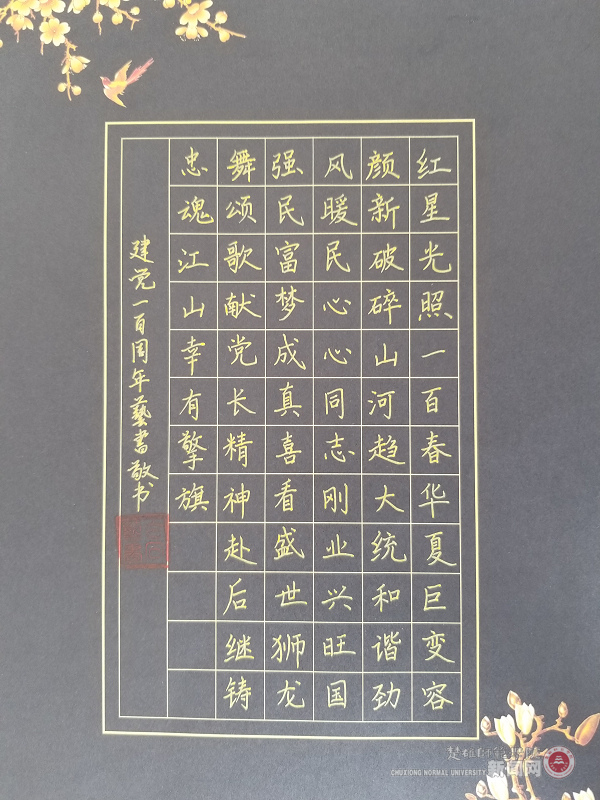 红星光照一百春华夏巨变容
颜新破碎山河趋大统和谐劲
风暖民心心同志刚业兴旺国
强民富梦成真喜看盛世狮龙
舞颂歌献党长精神赴后继铸
忠魂江山幸有擎旗
建党一百周年藝書敬书
CHUXIONG NORMAL UNIVERSITY
新闻网